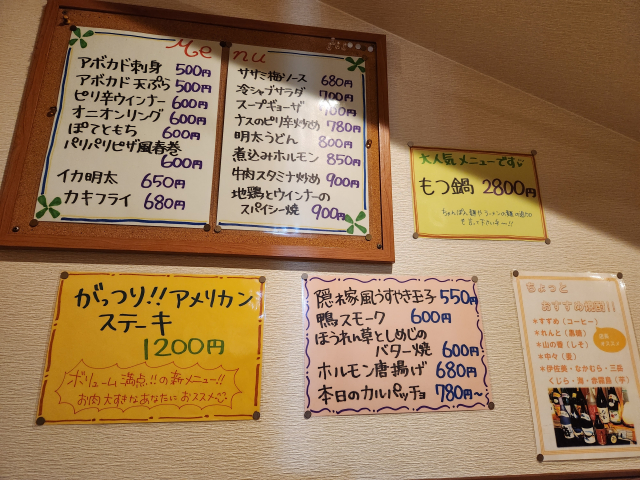 Menu
アボカド刺身 500円
アボカド天ぷら 500円
ピリ辛ウインナー 600円
オニオンリング 600円
ぽてともち 600円
パリパリピザ風春巻
600円
イカ明太 650円
カキフライ 680円
ササミ梅ソース 680円
冷シャブサラダ 700円
スープギョーザ 700円
ナスのピリ辛炒め 780円
明太うどん 800円
煮込みホルモン 850円
牛肉スタミナ炒め 900円
地鶏とウインナーの
スパイシー焼 900円
大人気メニューです
もつ鍋 2800円
がっつり!!アメリカン
ステーキ
1200円
ボリューム満点!!の新メニュー!!
お肉大すきなあなたにおススメ
隠れ家風うすやき玉子 550円
鴨スモーク 600円
ほうれん草としめじの
バター焼 600円
ホルモン唐揚げ 680円
本日のカルパッチョ 780円~
ちょっと
おすすめ焼酎!!
*すすめ(コーヒー)
*れんと(黒糖)
*山の香(しそ)
*中々(麦)
*伊佐美・なかむら・三岳
くじら・海・赤霧島(芋)